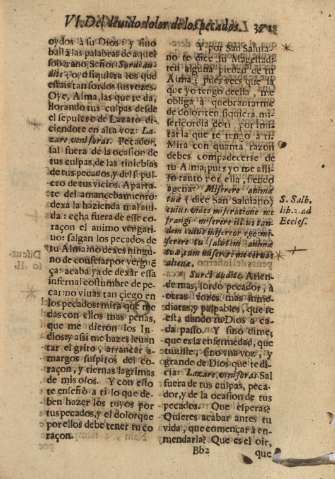 VI. Del deuido dolor de los pecados. 3
oydos à su Dios? y sino
basta las palabras de aquel
soberano Señor: Surdi au
dite: ò, si siquiera los que
estàs tan sordos surtezes.
Oye, Alma, las que te da,
llorando tus culpas desde
el sepulcro de Lazaro di-
ciendote en alta voz: La-
zare, veni foras. Pecador,
sal fuera de la ocasion de
tus culpas, de las tinieblas
de tus pecados, y del sepul-
cro de tus vicios. Aparta-
te del amancebamiento:
dexa la hazienda mal ha-
uida: echa fuera de esse co-
raçon el animo vengati-
uo: salgan los pecados de
tu Alma: no dexes ningu-
no de confessar por vergue-
ça: acaba ya de dexar essa
infernal costumbre de pe-
car: no viuas tan ciego en
los pecados: mira que me
das con ellos mas penas,
que me dieron los In-
dios; y assi me hazes leuan-
tar el grito, arrancar a-
margos suspiros del co-
raçon, y tiernas lagrimas
de mis ojos. Y con esto
te enseño à ti lo que de-
ben hazer los tuyos por
tus pecados, y el dolor que
por ellos debe tener tu co-
raçon.
Y por San Saluia-
no te dice su Magestad:
ten alguna piedad de tu
Alma; pues ves que la
que yo tengo de ella, me
obliga à quebrantarme
de dolor: ten siquiera mi-
sericordia de ti por imi-
tarla que te tengo à ti.
Mira con quanta razon
debes compadecerte de
tu Alma; pues yo me affli-
jo tanto por ella, siendo
agena: Miserere animæ
tuæ (dice San Saluiano)
cuius vides miseratione me
frangi: miserere illius tan-
dem cuius misereor ego: mi-
serere tu saltem animæ
tuæ, cum misereri me videas
alienæ.
Surdi audite. Atien-
de mas, sordo pecador, à
otras vozes mas sensi-
bles, y palpables, que te
està dando tu Dios à ca-
da passo. Y sino dime,
que es la enfermedad, que
tuuiste, sino vna voz, y
grande de Dios que te di-
cia: Lazare, veni foras. Sal
fuera de tus culpas, peca-
dor, y de la ocasion de tus
pecados. Que esperas?
Quieres acabar antes tu
vida, que començar à en-
mendarla? Que es el oir,
Bb2 que
S. Salb.
lib. 1. ad
Eccles.